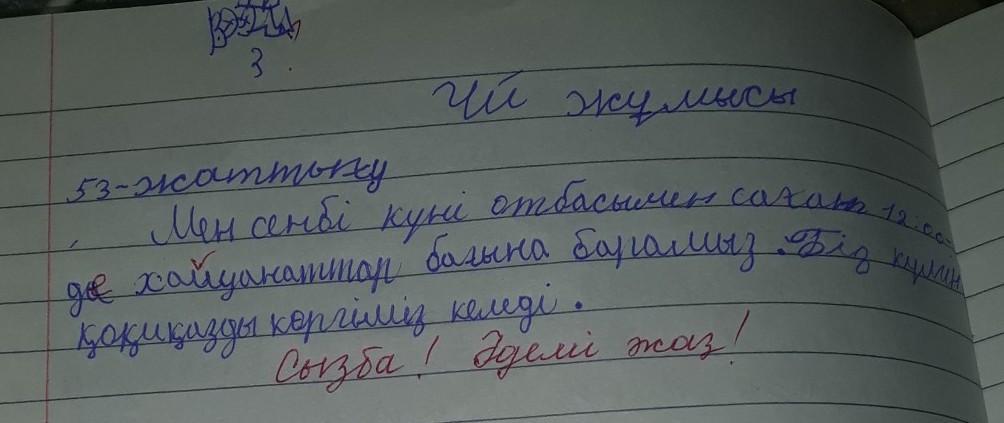 3.
Үй жұмысы
53-жаттығу
Мен сенбі күні отбасымен сахат 12:00-
де хайуанаттар бағына барамыз. Біз күлкін
қоқиқазды көргіміз келеді.
Сызба! Әдемі жаз!